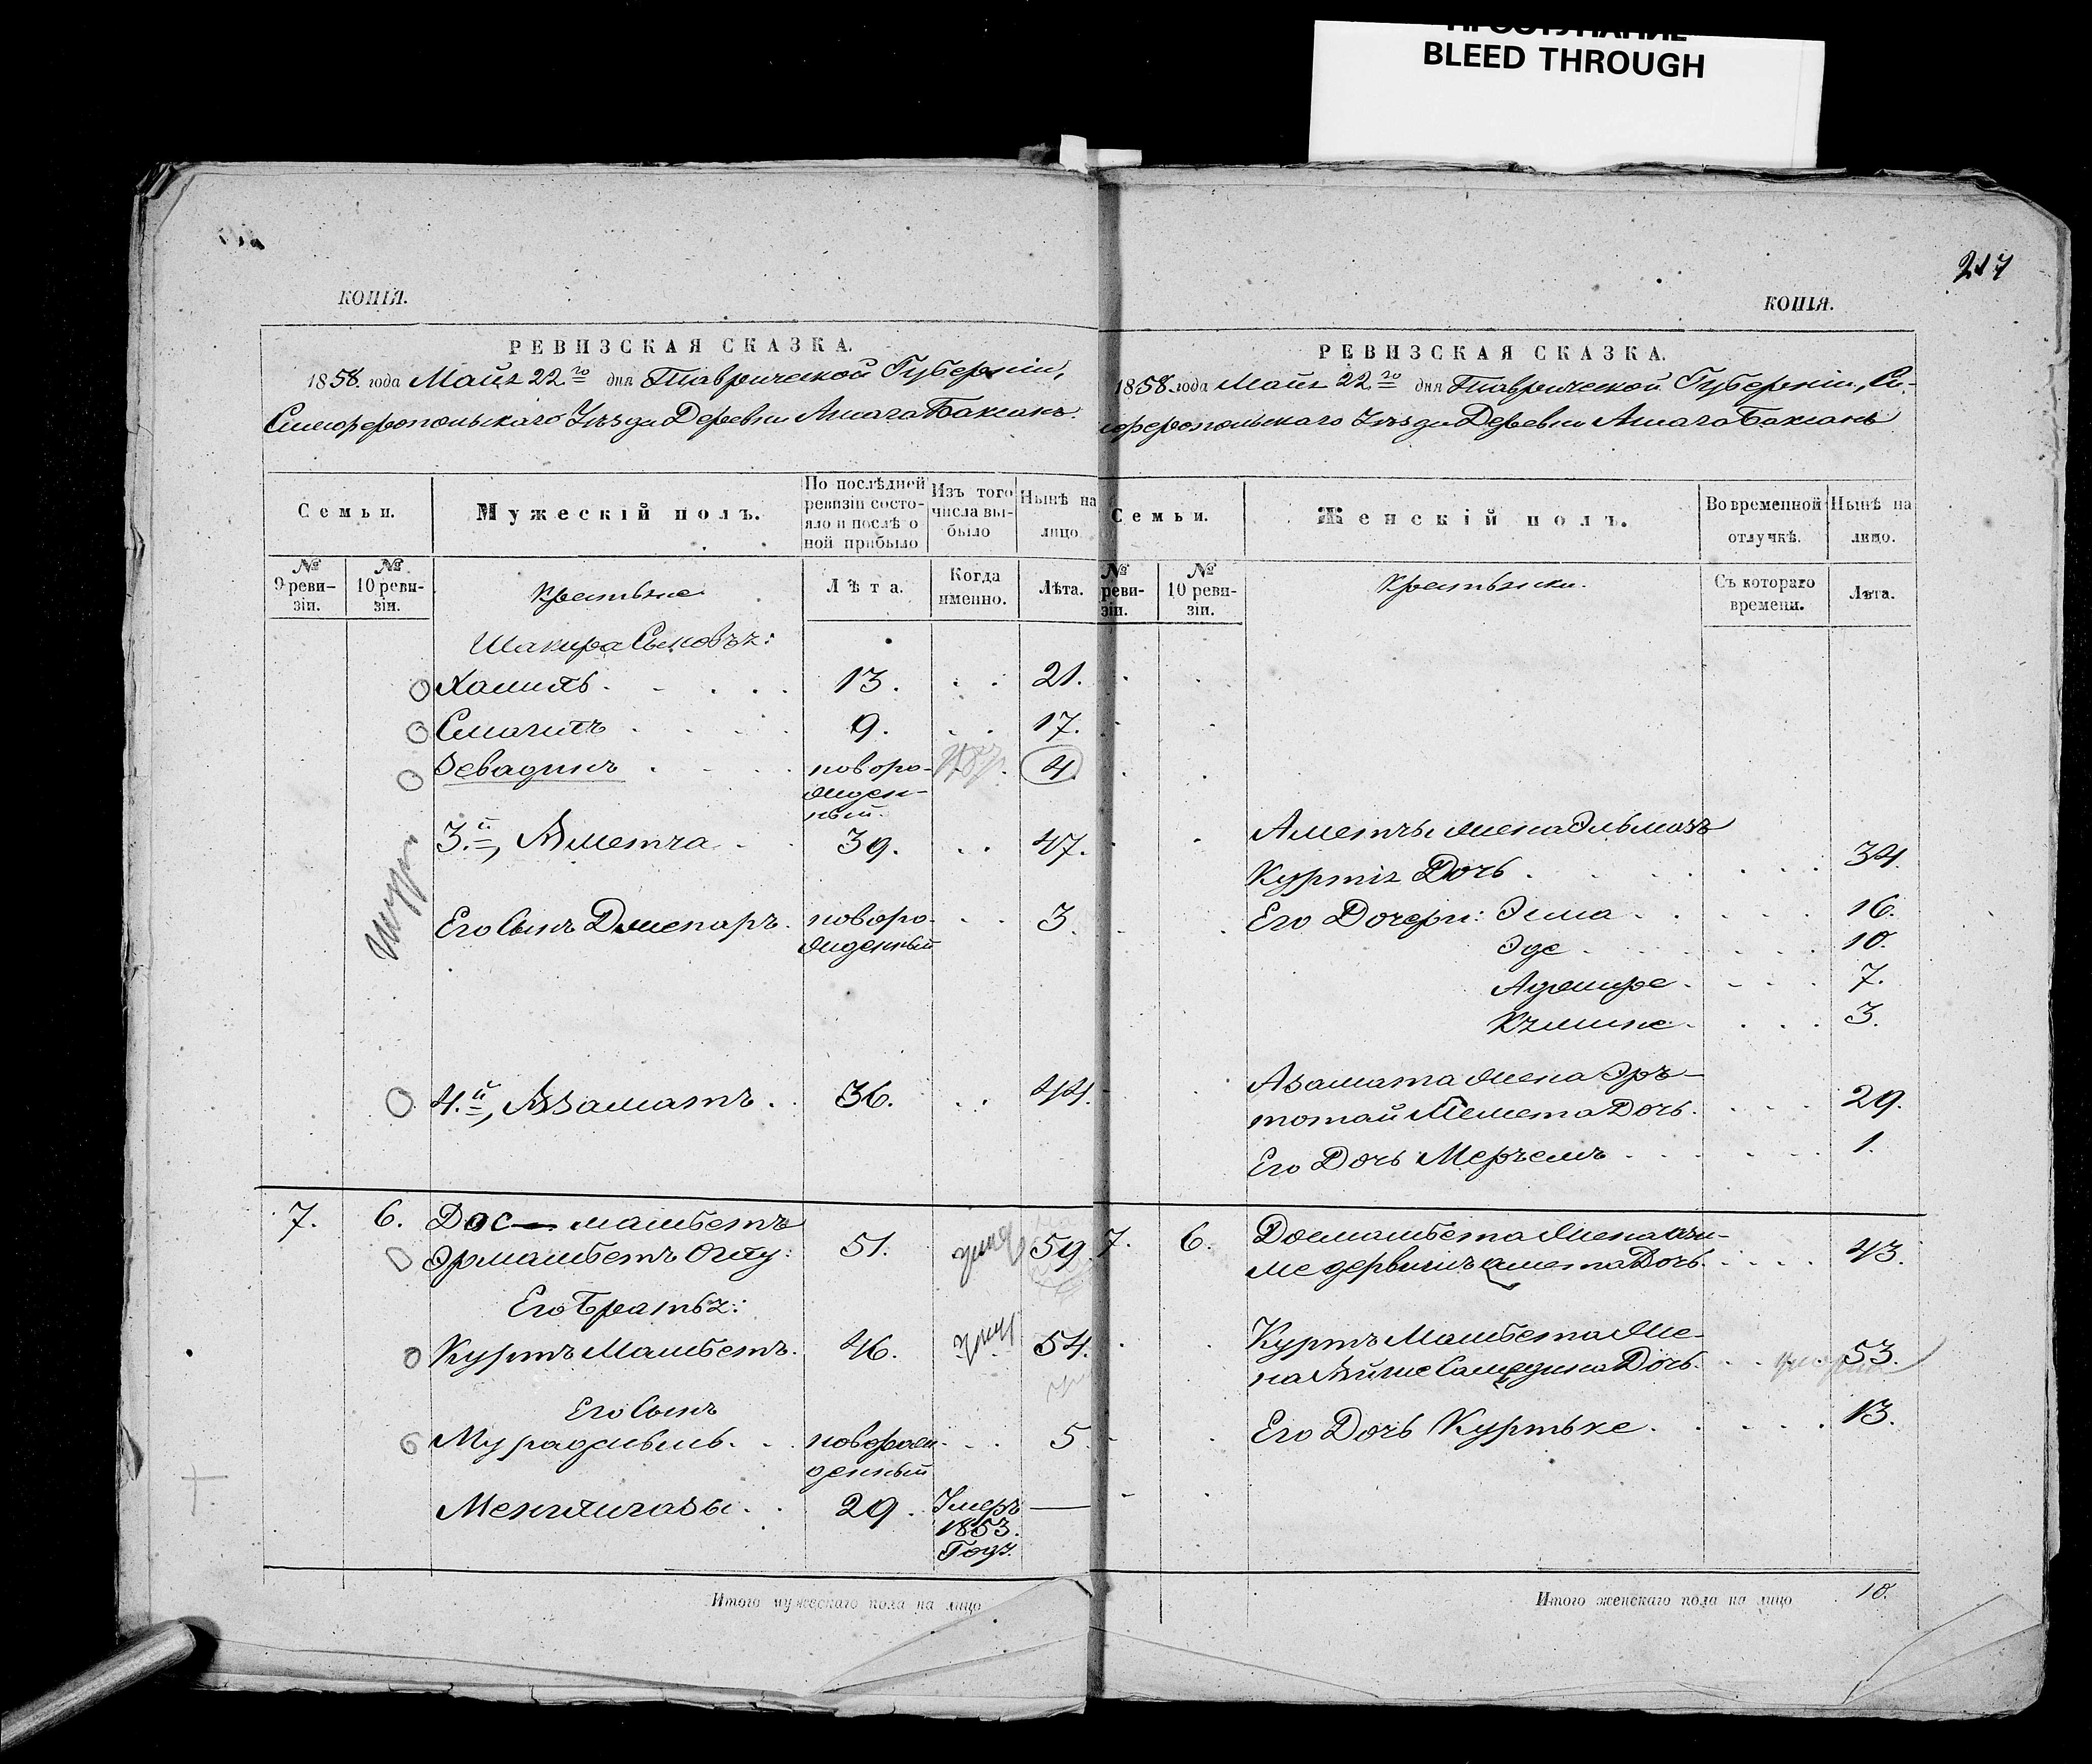 BLEED THROUGH
217
КОПІЯ.
РЕВИЗСКАЯ СКАЗКА.
1858 года Майя 22го дня Таврической Губерніи,
Симферопольскаго Уѣзда Деревни Ашага Баксанъ
Семьи.
Мужескій полъ.
По послѣдней
ревизіи состо-
яло и послѣ о
ной прибыло
Изъ того
числа вы-
было
Нынѣ на
лицо
№
9 реви-
зіи.
№
10 реви-
зіи.
Крестьяне
Лѣта.
Когда
именно.
Лѣта.
Шакира Сыновья:
Халиль 13. 21.
Смаилъ 9. 17.
Зевадинъ новоро- 4.
жден-
ный.
3.й, Аметча 39. 47.
Его Сынъ Джепаръ новоро- 3.
жденный
4.й, Азаматъ 36. 44.
7. 6. Досмамбетъ
Эрмамбетъ Оглу: 51. 59.
Его Братья:
Куртъ Мамбетъ 46. 54.
Его Сынъ
Мурадшъ новорож- 5.
денный
Менглигазы 29. Умеръ —
1853.
Года.
Итого мужескаго пола на лицо
КОПІЯ.
РЕВИЗСКАЯ СКАЗКА.
1858 года Майя 22го дня Таврической Губерніи, Си-
мферопольскаго Уѣзда Деревни Ашага Баксанъ
Семьи.
Женскій полъ.
Во временной
отлучкѣ.
Нынѣ на
лицо.
№
реви-
зіи.
№
10 реви-
зіи.
Крестьянки.
Съ котораго
времени.
Лѣта.
Аметчы жена Эльмазъ
Куртія Дочь 34.
Его Дочери: Эмма 16.
Эде 10.
Аджире 7.
3.
Азамата жена Эръ-
тотай Мемета Дочь 29.
Его Дочь Мерьемъ 1.
7. 6. Досмамбета Жена
Дочь 43.
Куртъ Мамбета Же-
на Айше Самедина Дочь 53.
Его Дочь Куртьке 13.
Итого женскаго пола на лицо 10.